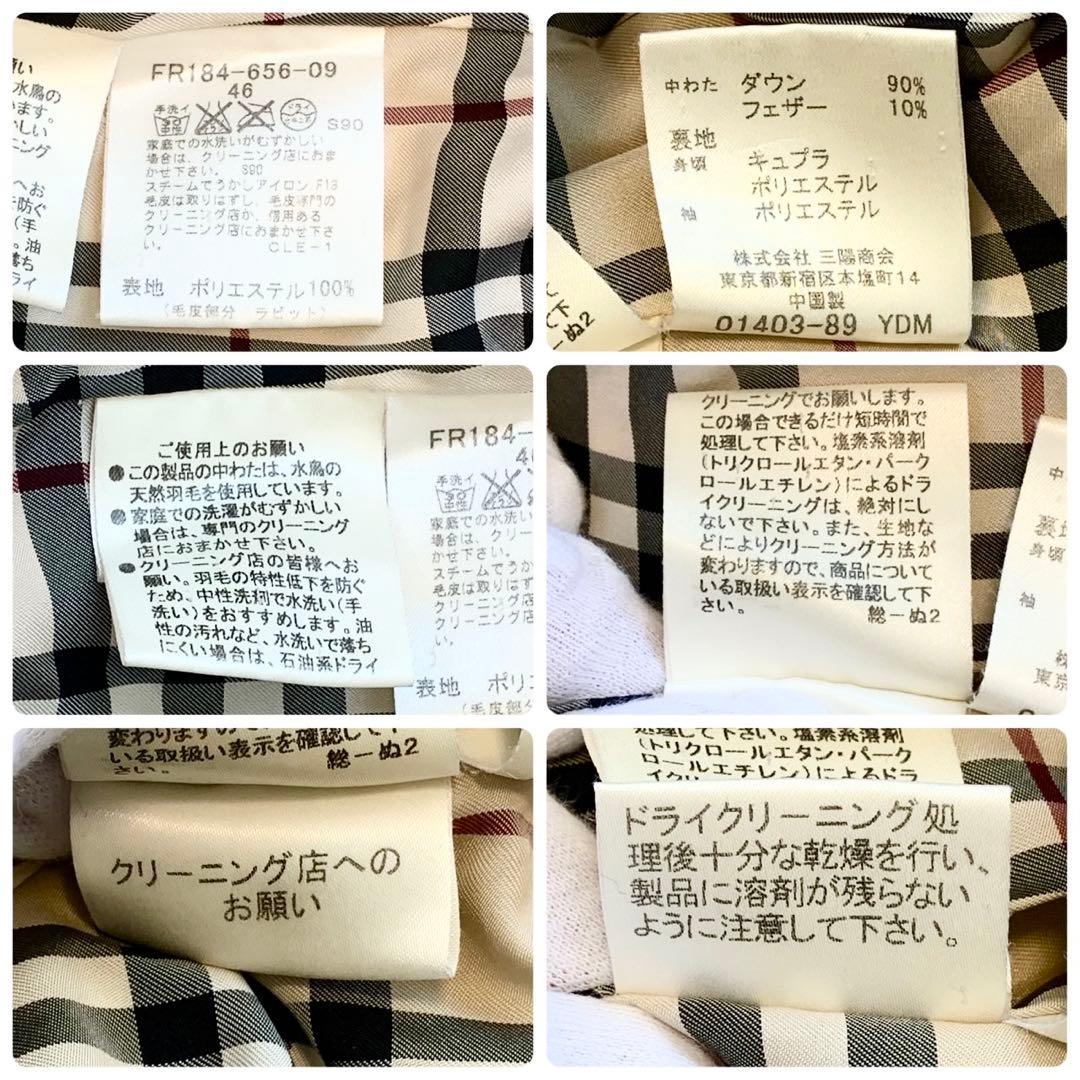 い
水鳥の
ます。
かしい
ニング
へお
防ぐ
(手
。油
落ち
ライ
FR184-656-09
46
手洗イ
中性
ドライ
S90
家庭での水洗いがむずかしい
場合は、クリーニング店におま
かせ下さい。 S90
スチームでうかしアイロン F13
毛皮は取りはずし、毛皮専門の
クリーニング店か、信用ある
クリーニング店におまかせ下さ
い。 CLE-1
表地 ポリエステル100%
(毛皮部分 ラビット)
中わた ダウン 90%
フェザー 10%
裏地
身頃 キュプラ
ポリエステル
袖 ポリエステル
株式会社 三陽商会
東京都新宿区本塩町14
中国製
01403-89 YDM
て下
ーぬ2
ご使用上のお願い
●この製品の中わたは、水鳥の
天然羽毛を使用しています。
●家庭での洗濯がむずかしい
場合は、専門のクリーニング
店におまかせ下さい。
●クリーニング店の皆様へお
願い。羽毛の特性低下を防ぐ
ため、中性洗剤で水洗い(手
洗い)をおすすめします。油
性の汚れなど、水洗いで落ち
にくい場合は、石油系ドライ
FR184-
手洗イ
中性
家庭での水洗い
場合は、クリーン
かせ下さい。
スチームでうか
毛皮は取りはず
クリーニング店
クリーニング店
い。
表地 ポリ
(毛皮部分
クリーニングでお願いします。
この場合できるだけ短時間で
処理して下さい。塩素系溶剤
(トリクロールエタン・パーク
ロールエチレン)によるドラ
イクリーニングは、絶対にし
ないで下さい。また、生地な
どによりクリーニング方法が
変わりますので、商品について
いる取扱い表示を確認して下
さい。 総ーぬ2
中
裏地
身頃
袖
株
東京
変わりますの
いる取扱い表示を確認して下
さい。 総ーぬ2
クリーニング店への
お願い
処理して下さい。塩素系溶剤
(トリクロールエタン・パーク
ロールエチレン)によるドラ
ドライクリーニング処
理後十分な乾燥を行い、
製品に溶剤が残らない
ように注意して下さい。